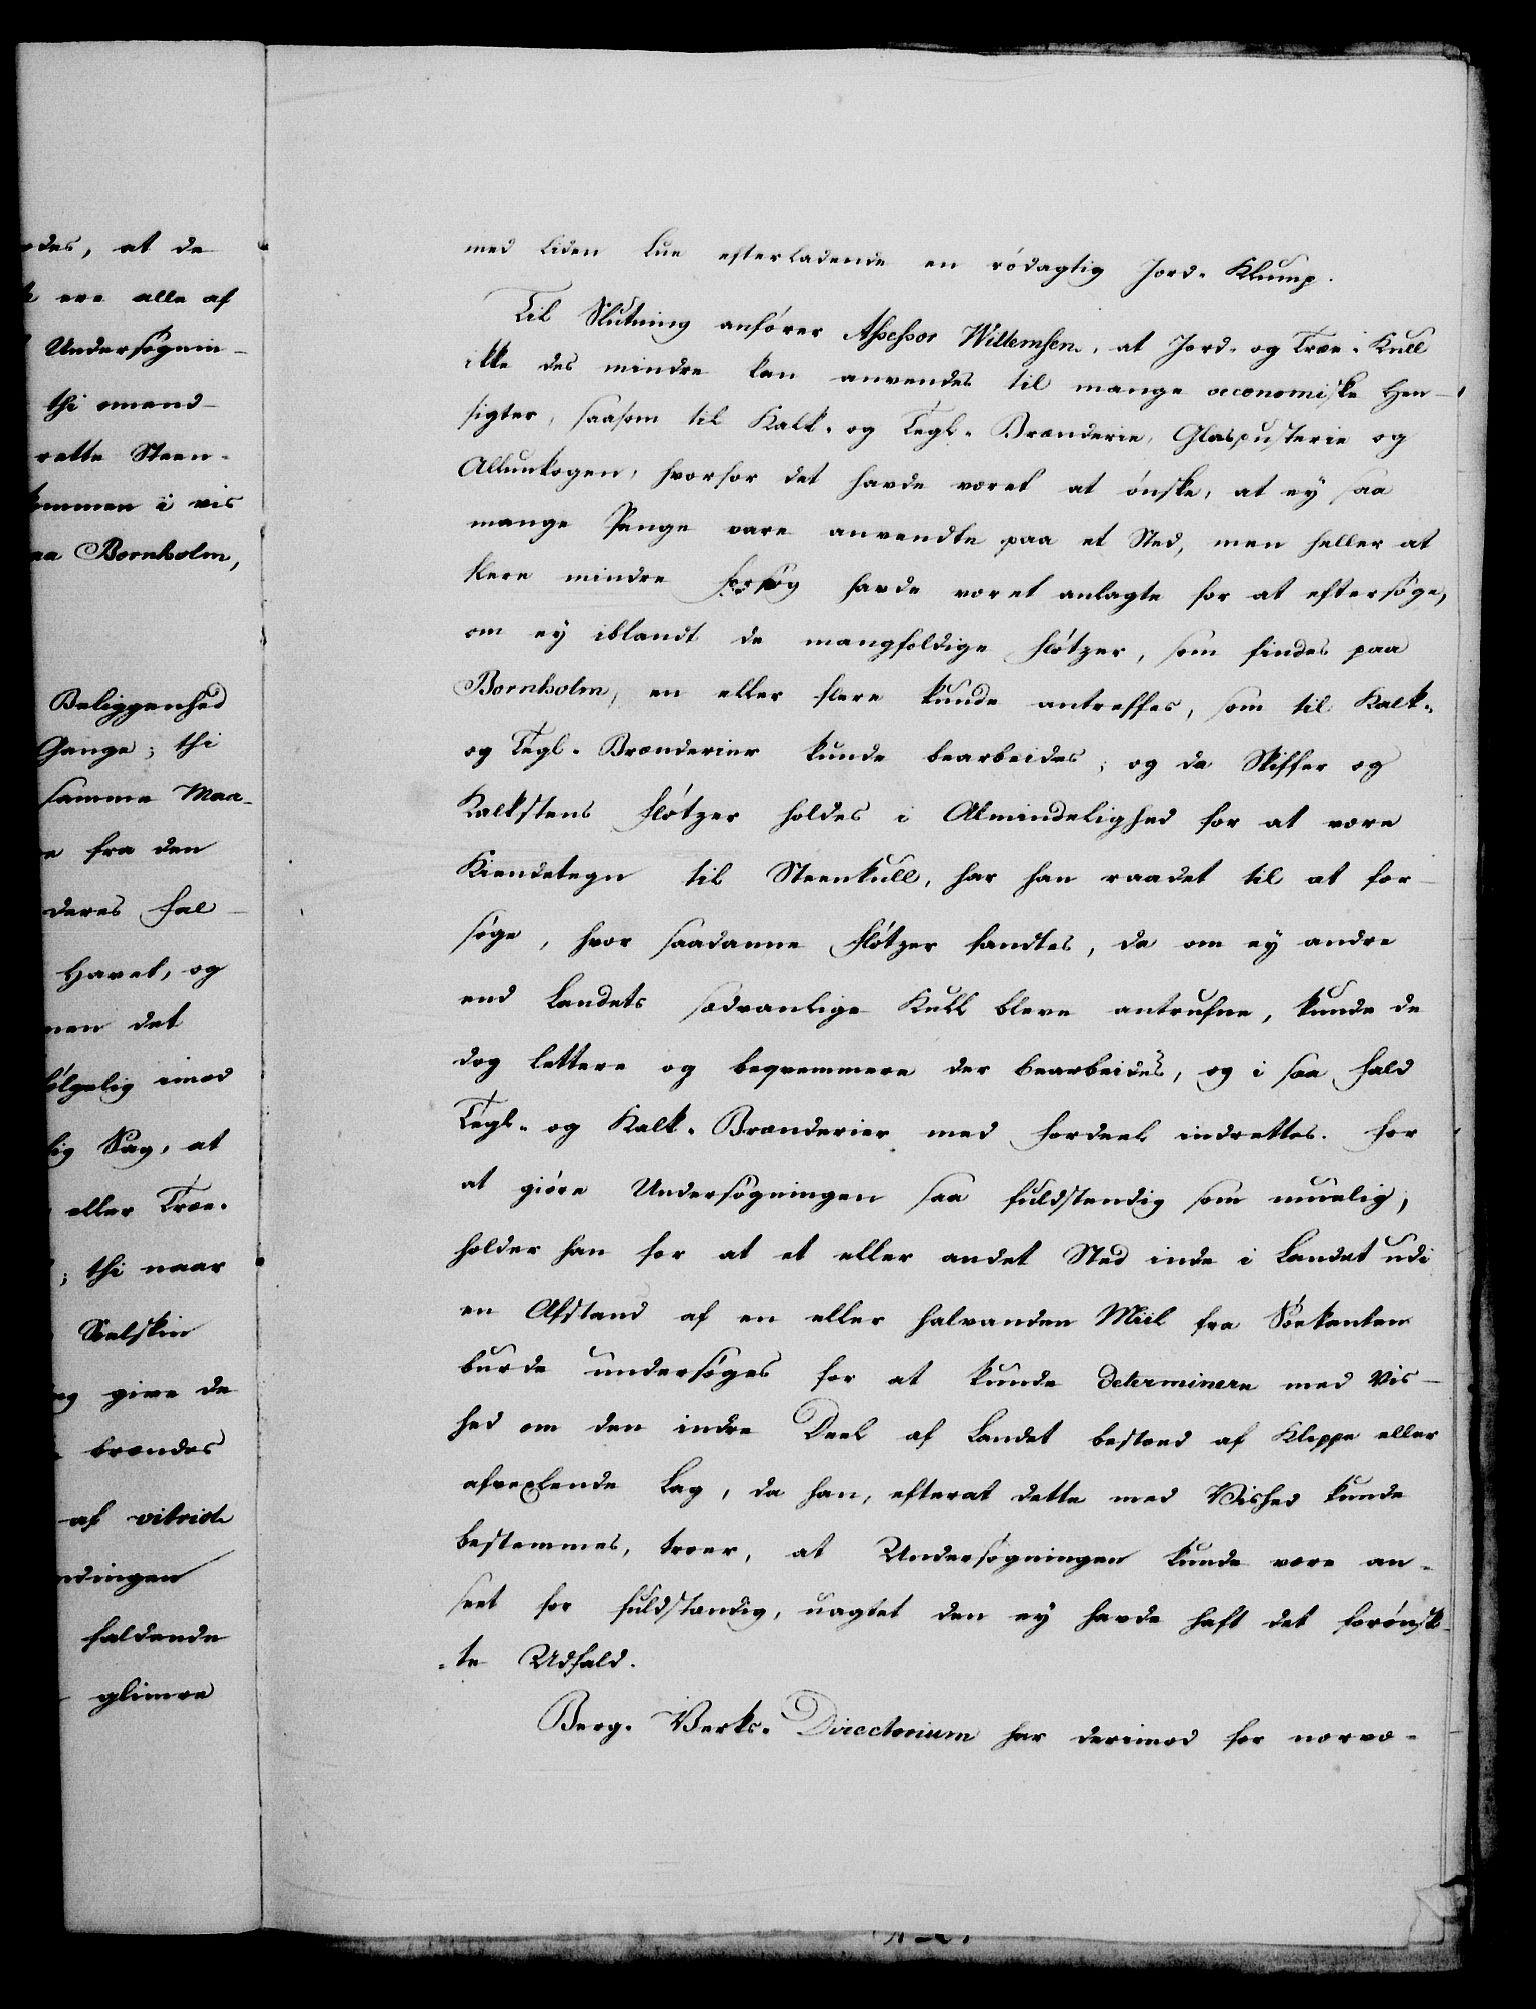 odes, at de
ere alle af
Undersøgnin-
thi omend-
rette Steen-
kommen i vis
paa Bornholm,
Beliggenhed
Gange; thi
samme Maa-
fra den
deres Fal-
Havet, og
men det
følgelig imod
lig Sag, at
eller Træe-
; thi naar
Soelskin
give de
brændes
af vitriol
ndingen
faldende
glimre
med liden Lue efterladende en rødagtig Jord-Klump.
Til Slutning anfører Assessor Willemsen, at Jord- og Træe-Kull
ikke des mindre kan anvendes til mange oeconomiske Hen-
sigter, saasom til Kalk- og Tegl-Brænderie, Glaspusterie og
Allunkogen, hvorfor det havde været at ønske, at ey saa
mange Penge vare anvendte paa et Sted, men heller at
flere mindre Forsøg havde været anlagte for at eftersøge,
om ey iblandt de mangfoldige Fløtzer, som findes paa
Bornholm, en eller flere kunde antreffes, som til Kalk-
og Tegl-Brænderier kunde bearbeides; og da Skiffer og
Kalkstens Fløtzer holdes i Almindelighed for at være
Kiendetegn til Steenkull, har han raadet til at for-
søge, hvor saadanne Fløtzer fandtes, da om ey andre
end Landets sædvanlige Kull bleve antrufne, kunde de
dog lettere og beqvemmere der bearbeides, og i saa Fald
Tegl- og Kalk-Brænderier med Fordeel indrettes. For
at giøre Undersøgningen saa fuldstændig som muelig,
holder han for at et eller andet Sted inde i Landet udi
en Afstand af en eller halvanden Miil fra Søekanten
burde undersøges for at kunde determinere med Vis-
hed om den indre Deel af Landet bestoed af Klippe eller
afvexlende Lag, da han, efterat dette med Vished kunde
bestemmes, troer, at Undersøgningen kunde være an-
seet for fuldstændig, uagtet den ey havde haft det forønsk-
-te Udfald.
Berg-Verks-Directorium har derimod for nærvæ-